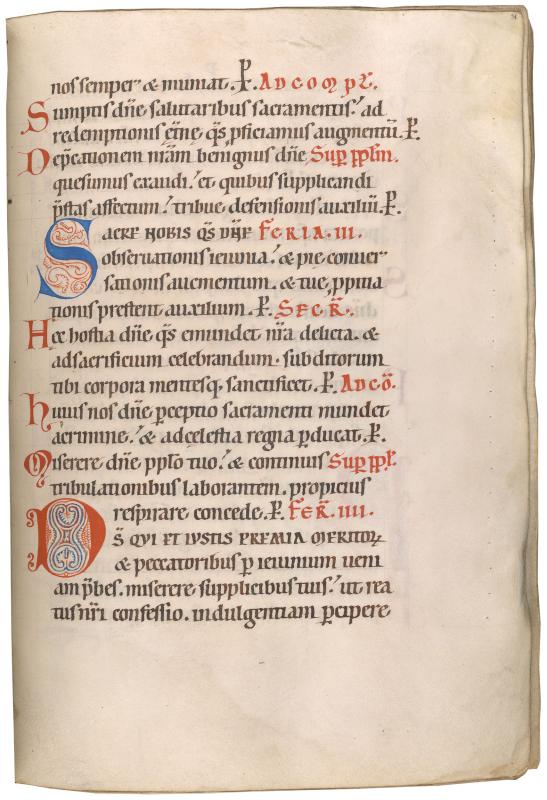 nos semper & muniat. P. AD COMPL.
Sumptis dn̄e salutaribus sacramentis: ad
redemptionis etn̄e q̄s ꝓficiamus augmentū. P.
Dep̄cationem nr̄am benignus dn̄e Sup̄ ppl̄m.
quesumus exaudi: et quibus supplicandi
p̄stas affectum: tribue defensionis auxiliū. P.
SACRE NOBIS Q̄S DN̄E FERIA. III.
observationis ieiunia: & pie conver
sationis aucmentum. & tue ꝓpitia
tionis prestent auxilium. P. SECR̄.
Hec hostia dn̄e q̄s emundet nr̄a delicta. &
ad sacrificium celebrandum. subditorum
tibi corpora mentesq; sanctificet. P. AD CŌ.
Huius nos dn̄e ꝑceptio sacramenti mundet
a crimine: & ad celestia regna ꝑducat. P.
Miserere dn̄e pplo tuo: & continuis Sup̄ ppl.
tribulationibus laborantem. propicius
respirare concede. P. FER̄. IIII.
DS̄ QUI ET IUSTIS PREMIA MERITOꝜ
& peccatoribus ꝑ ieiunium veni
am p̄bes. miserere supplicibus tuis: ut rea
tus nr̄i confessio. indulgentiam ꝑcipere